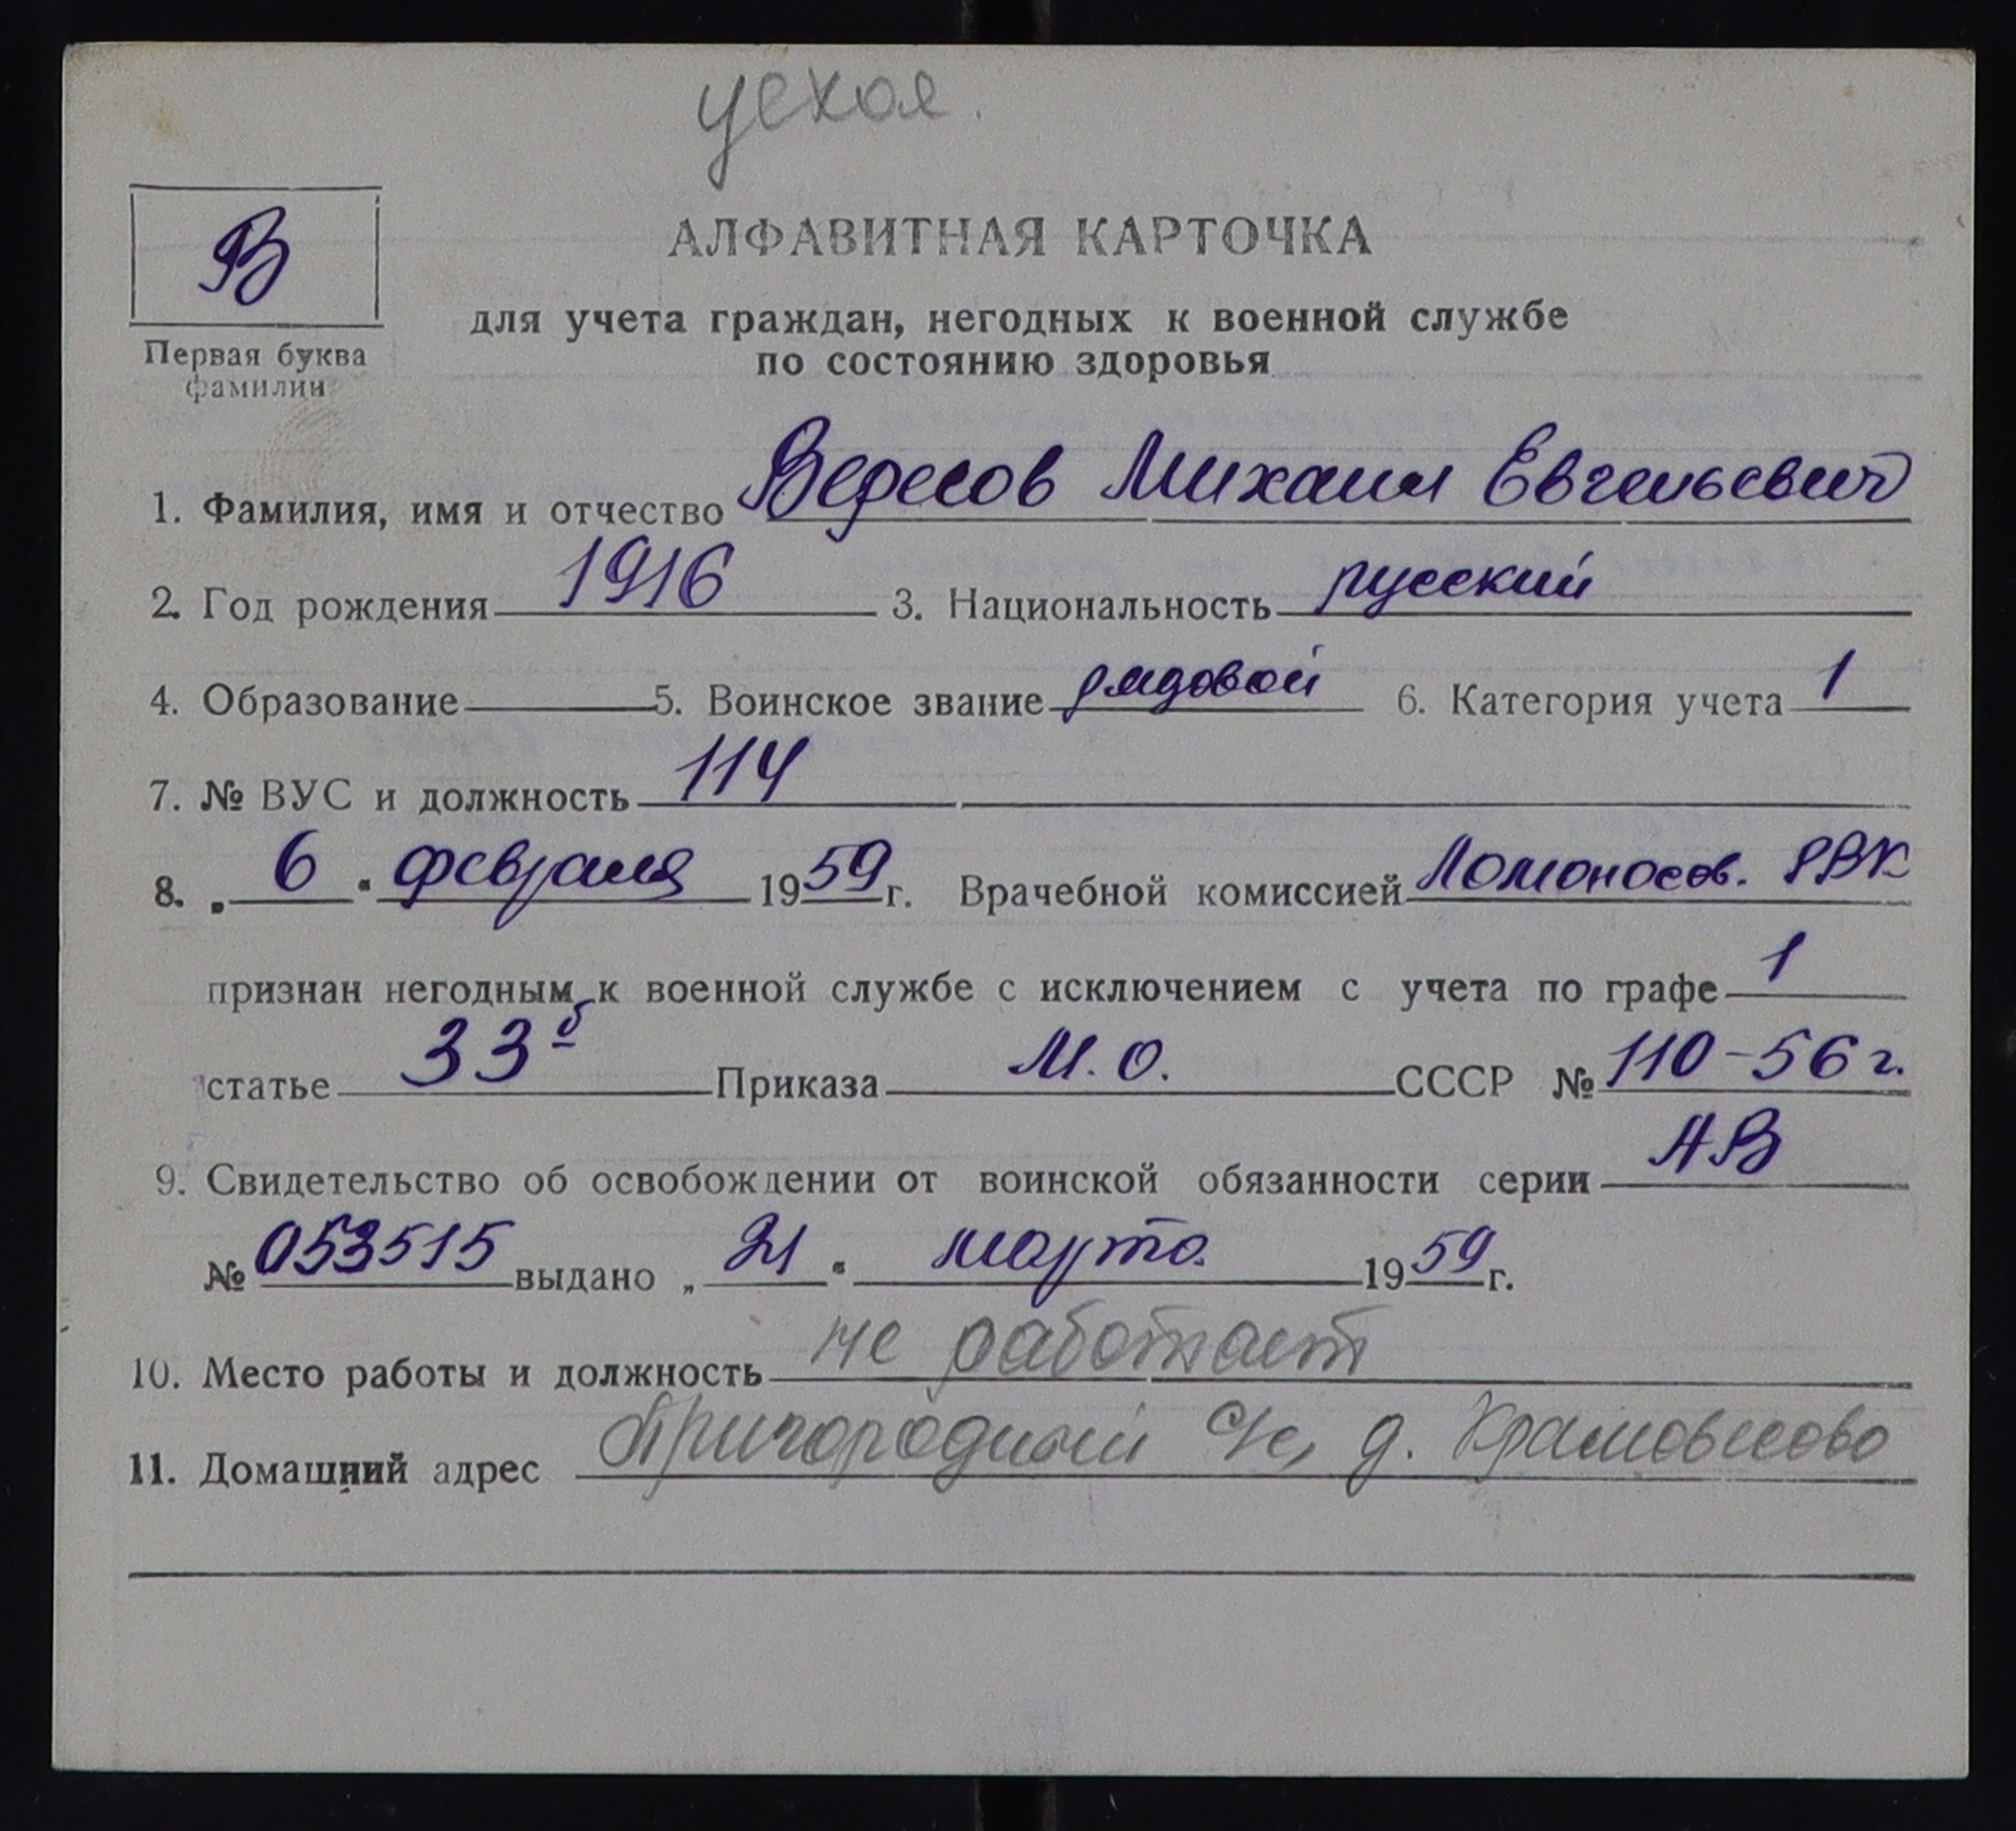 уехал.
В
Первая буква
фамилии
АЛФАВИТНАЯ КАРТОЧКА
для учета граждан, негодных к военной службе
по состоянию здоровья
1. Фамилия, имя и отчество Вересов Михаил Евгеньевич
2. Год рождения 1916 3. Национальность русский
4. Образование 5. Воинское звание рядовой 6. Категория учета 1
7. № ВУС и должность 114
8. „ 6 " февраля 1959 г. Врачебной комиссией Ломоносов. РВК
признан негодным к военной службе с исключением с учета по графе 1
статье 33б Приказа М.О. СССР № 110-56 г.
9. Свидетельство об освобождении от воинской обязанности серии АВ
№ 053515 выдано „ 21 " марта 1959 г.
10. Место работы и должность не работает
11. Домашний адрес Пригородный с/с, д.